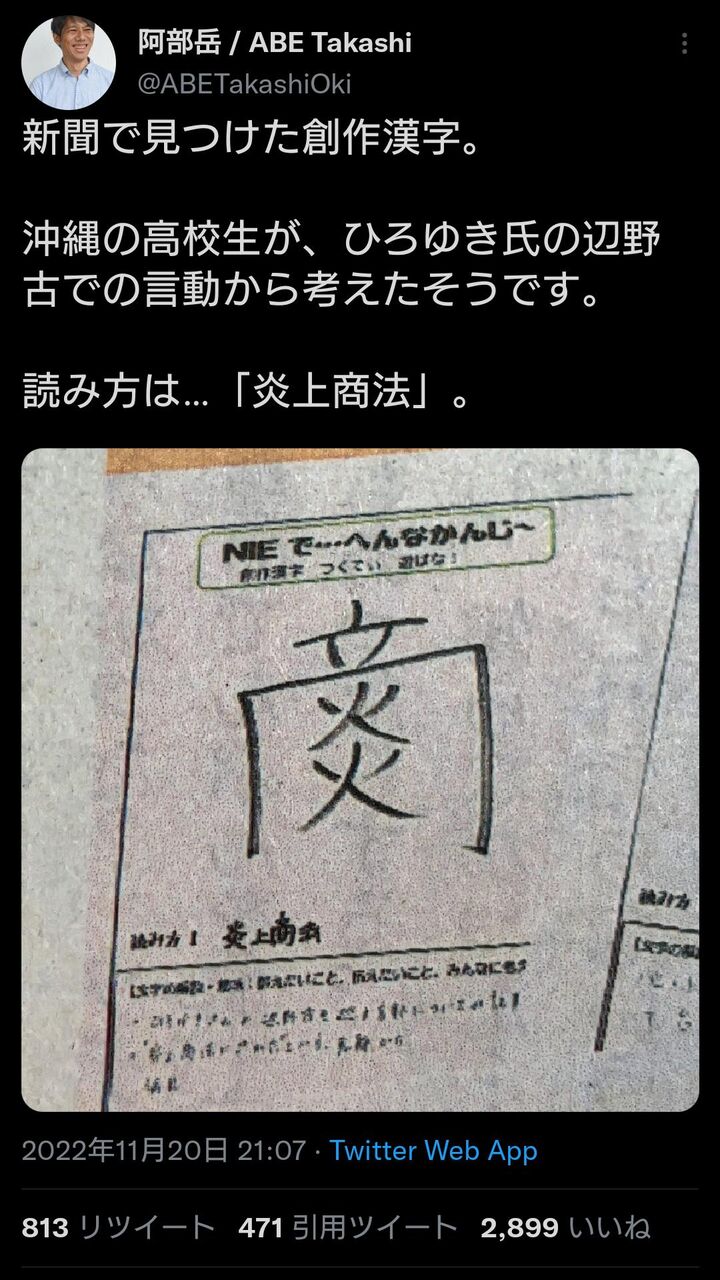 阿部岳 / ABE Takashi
@ABETakashiOki
新聞で見つけた創作漢字。
沖縄の高校生が、ひろゆき氏の辺野
古での言動から考えたそうです。
読み方は…「炎上商法」。
NIE で…へんなかんじ〜
創作漢字 つくてぃ 遊ばな!
読み方 : 炎上商法
読み方
2022年11月20日 21:07 · Twitter Web App
813 リツイート 471 引用ツイート 2,899 いいね